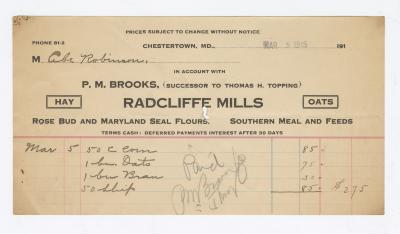 PRICES SUBJECT TO CHANGE WITHOUT NOTICE
PHONE 81-3
CHESTERTOWN, MD., MAR 5 1915 191
M Abe Robinson,
IN ACCOUNT WITH
P. M. BROOKS, (SUCCESSOR TO THOMAS H. TOPPING)
HAY RADCLIFFE MILLS OATS
ROSE BUD AND MARYLAND SEAL FLOURS. SOUTHERN MEAL AND FEEDS
TERMS CASH: DEFERRED PAYMENTS INTEREST AFTER 30 DAYS
Mar 5 50 C Corn 85
1 bu Oats 75
1 bu Bran 30
50 Ship 85 $ 2 75
Paid
PM Brooks